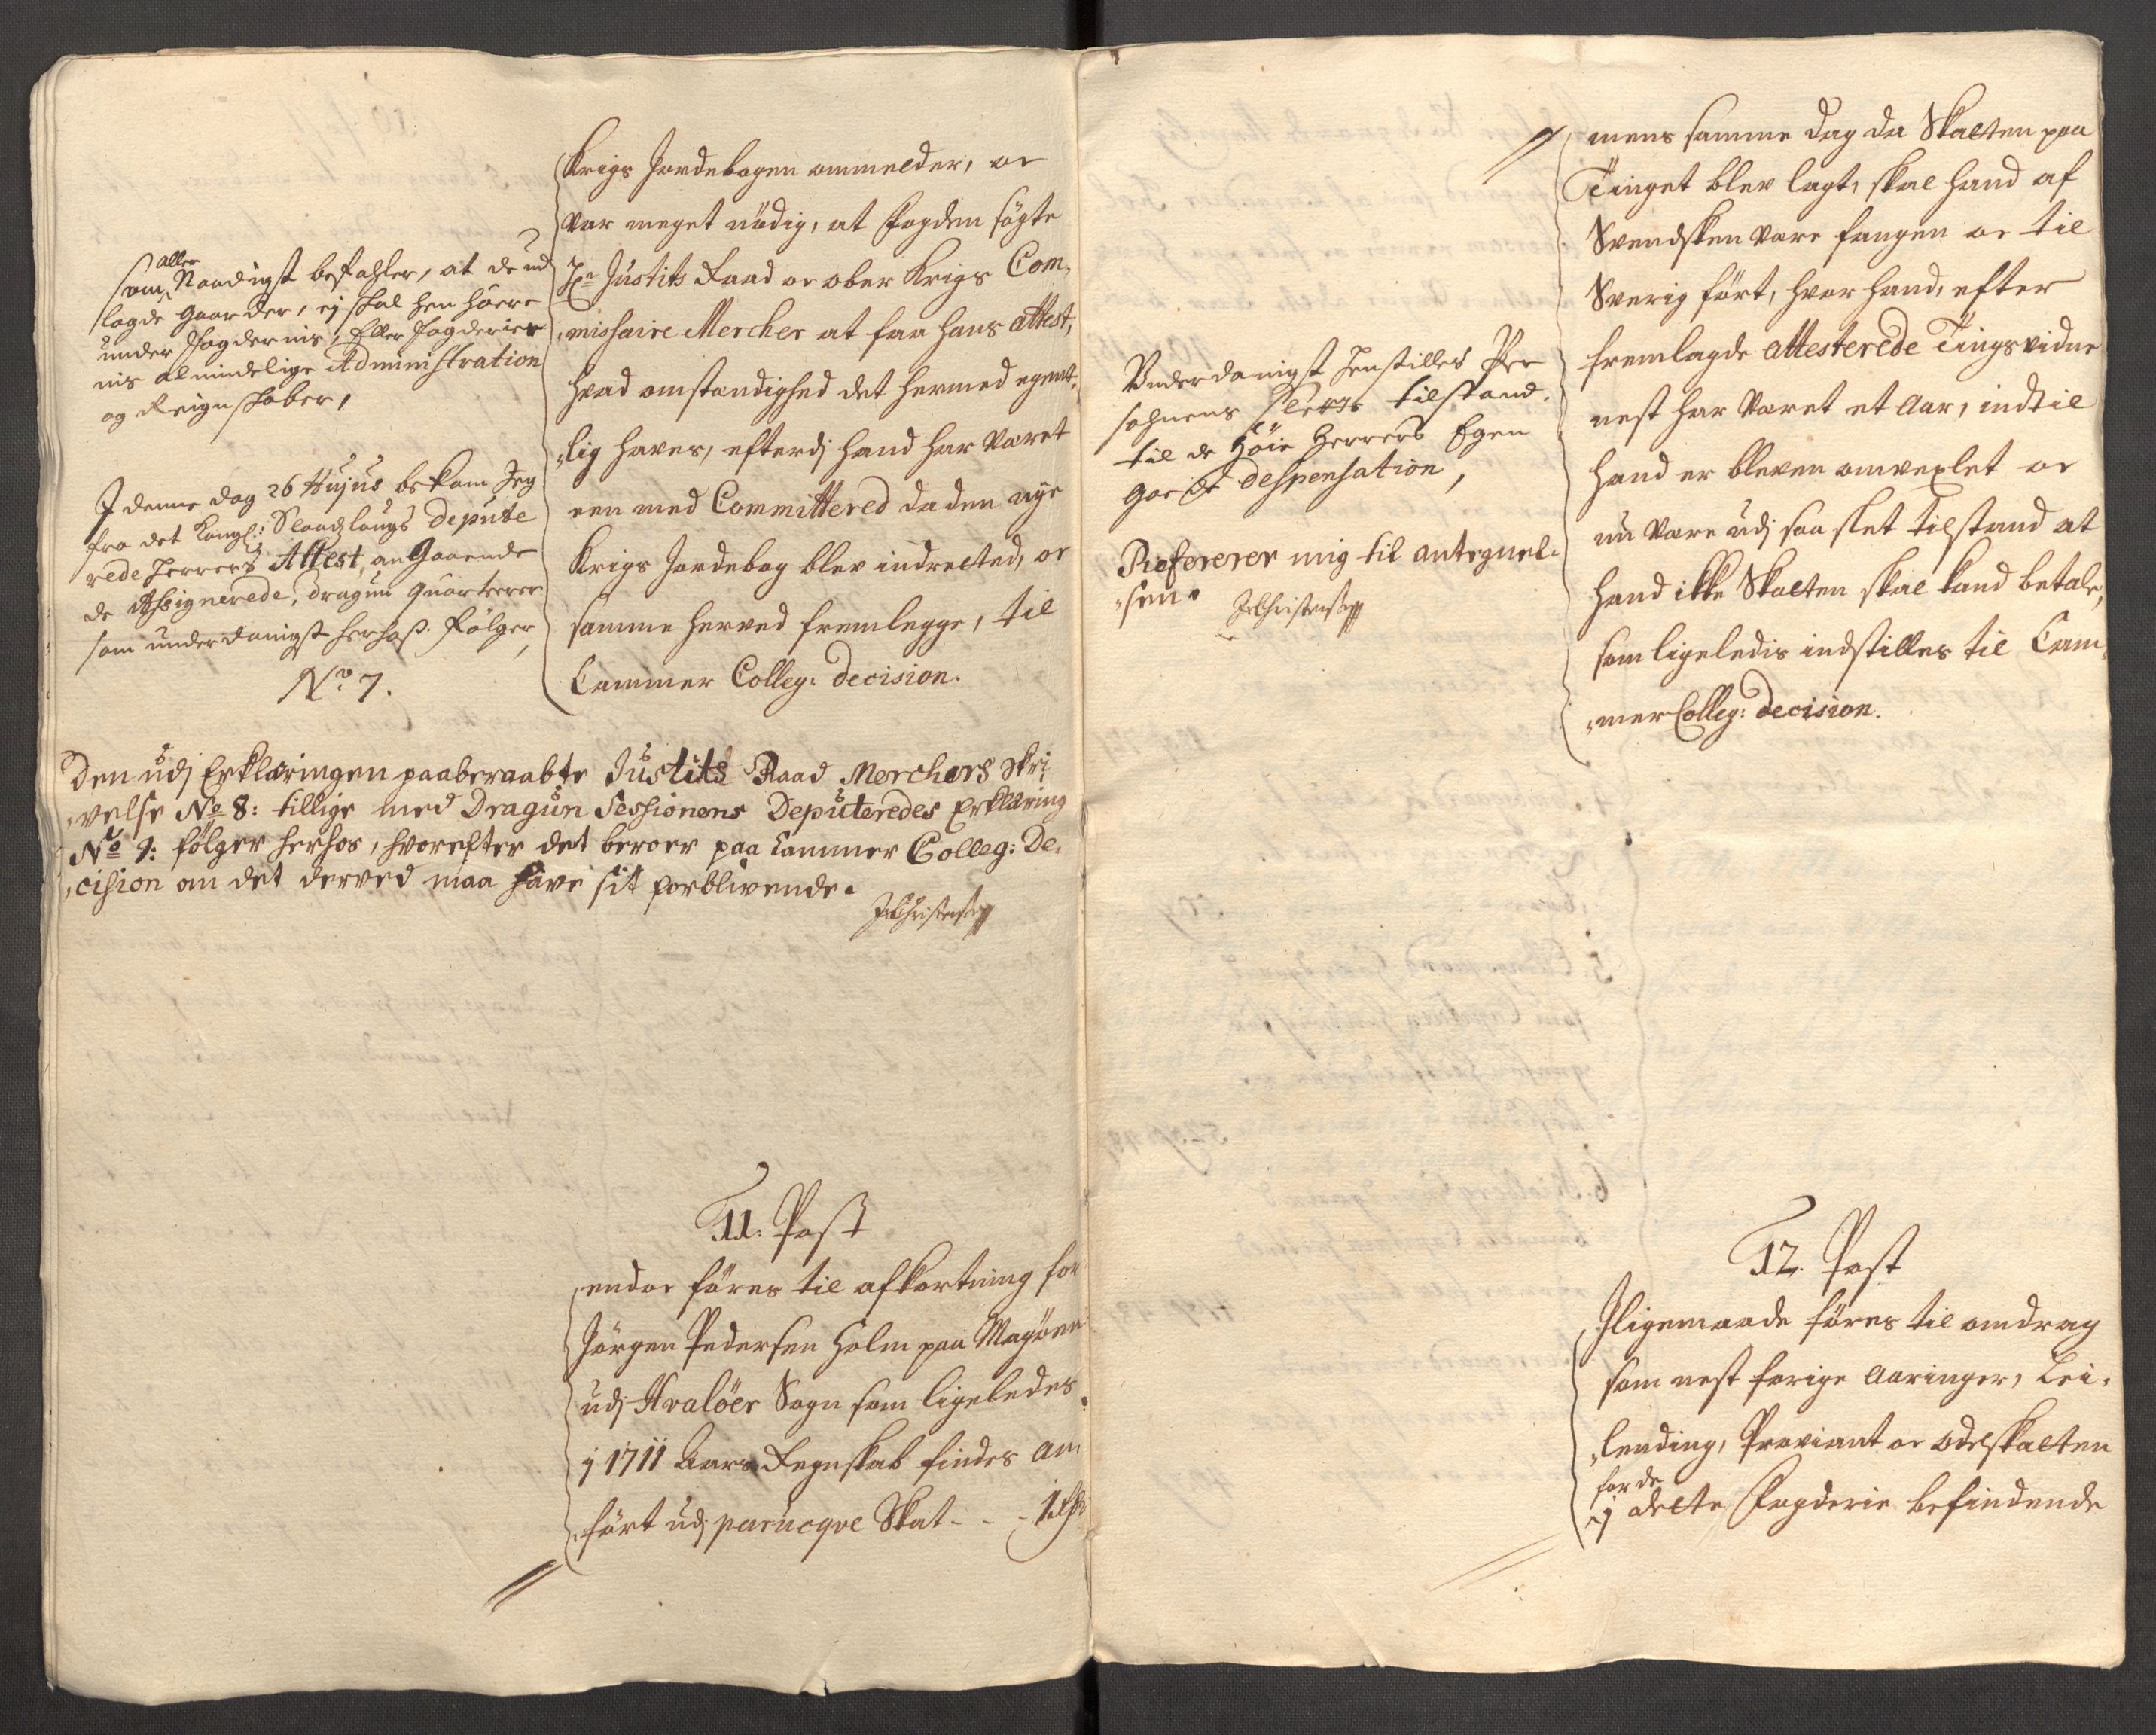 som aller Naadigst befahler, at de ud
lagde gaarder, ej skal hen höere
under fogdernis, Eller fogderier
nis almindelige Administration
og Reignskaber,
I denne dag 26 Hujus bekom Jeg
fra det Kongl: Slaadslougs depute
rede Herrers Attest, an Gaaende
de Assignerede, dragun quarterer
som underdanigst herhoss. følger,
No 7.
Krigs Jordebogen ommelder, oc
var meget nödig, at fogden sögte
Hr Justits Raad oc ober Krigs Com,
,missaire Mercher at faa hans attest,
hvad omstendighed det hermed egent,
,lig haves, efterdj hand har været
een med Committered da den nye
Krigs Jordebog blev indretted, oc
samme herved fremlegge, til
Cammer Colleg: decision.
Den udj Erklæringen paaberaabte Justits Raad Merchers Skri
,velse No 8: tillige med Dragun Sessionens Deputeredes Erklæring
No 9: følger herhos, hvorefter det beroer paa Cammer Colleg: De,
,cision om det derved maa have sit forblivende.
JChristensen
11. Post
endoc föres til afkortning for
Jörgen Pedersen Holm paa Magöen
udj Hvalöer Sogn som ligeledes
j 1711 Aars Regnskab findes an,
,fört udj parucqve Skat - - - 1 rdr
Underdanigst Henstilles Per
sohnens slette tilstand,
til de Höie Herrers Egen
goede despensation,
Refererer mig til antegnel,
,sen.
JChristensen
mens samme dag da Skatten paa
Tinget blev lagt, skal hand af
Svendsken være fangen oc til
Sverig fört, hvor hand, efter
fremlagde attesterede Tingsvidne
nest har været et Aar, indtil
hand er bleven omvexlet oc
nu være udj saa slet tilstand at
hand ikke Skatten skal kand betale,
som ligeledis indstilles til Cam,
,mer Colleg: decision.
12. Post
Iligemaade föres til omdrag
som nest forige Aaringer, Lei,
,lending, Proviant oc odelskatten
for de
j dette Fogderie befindende